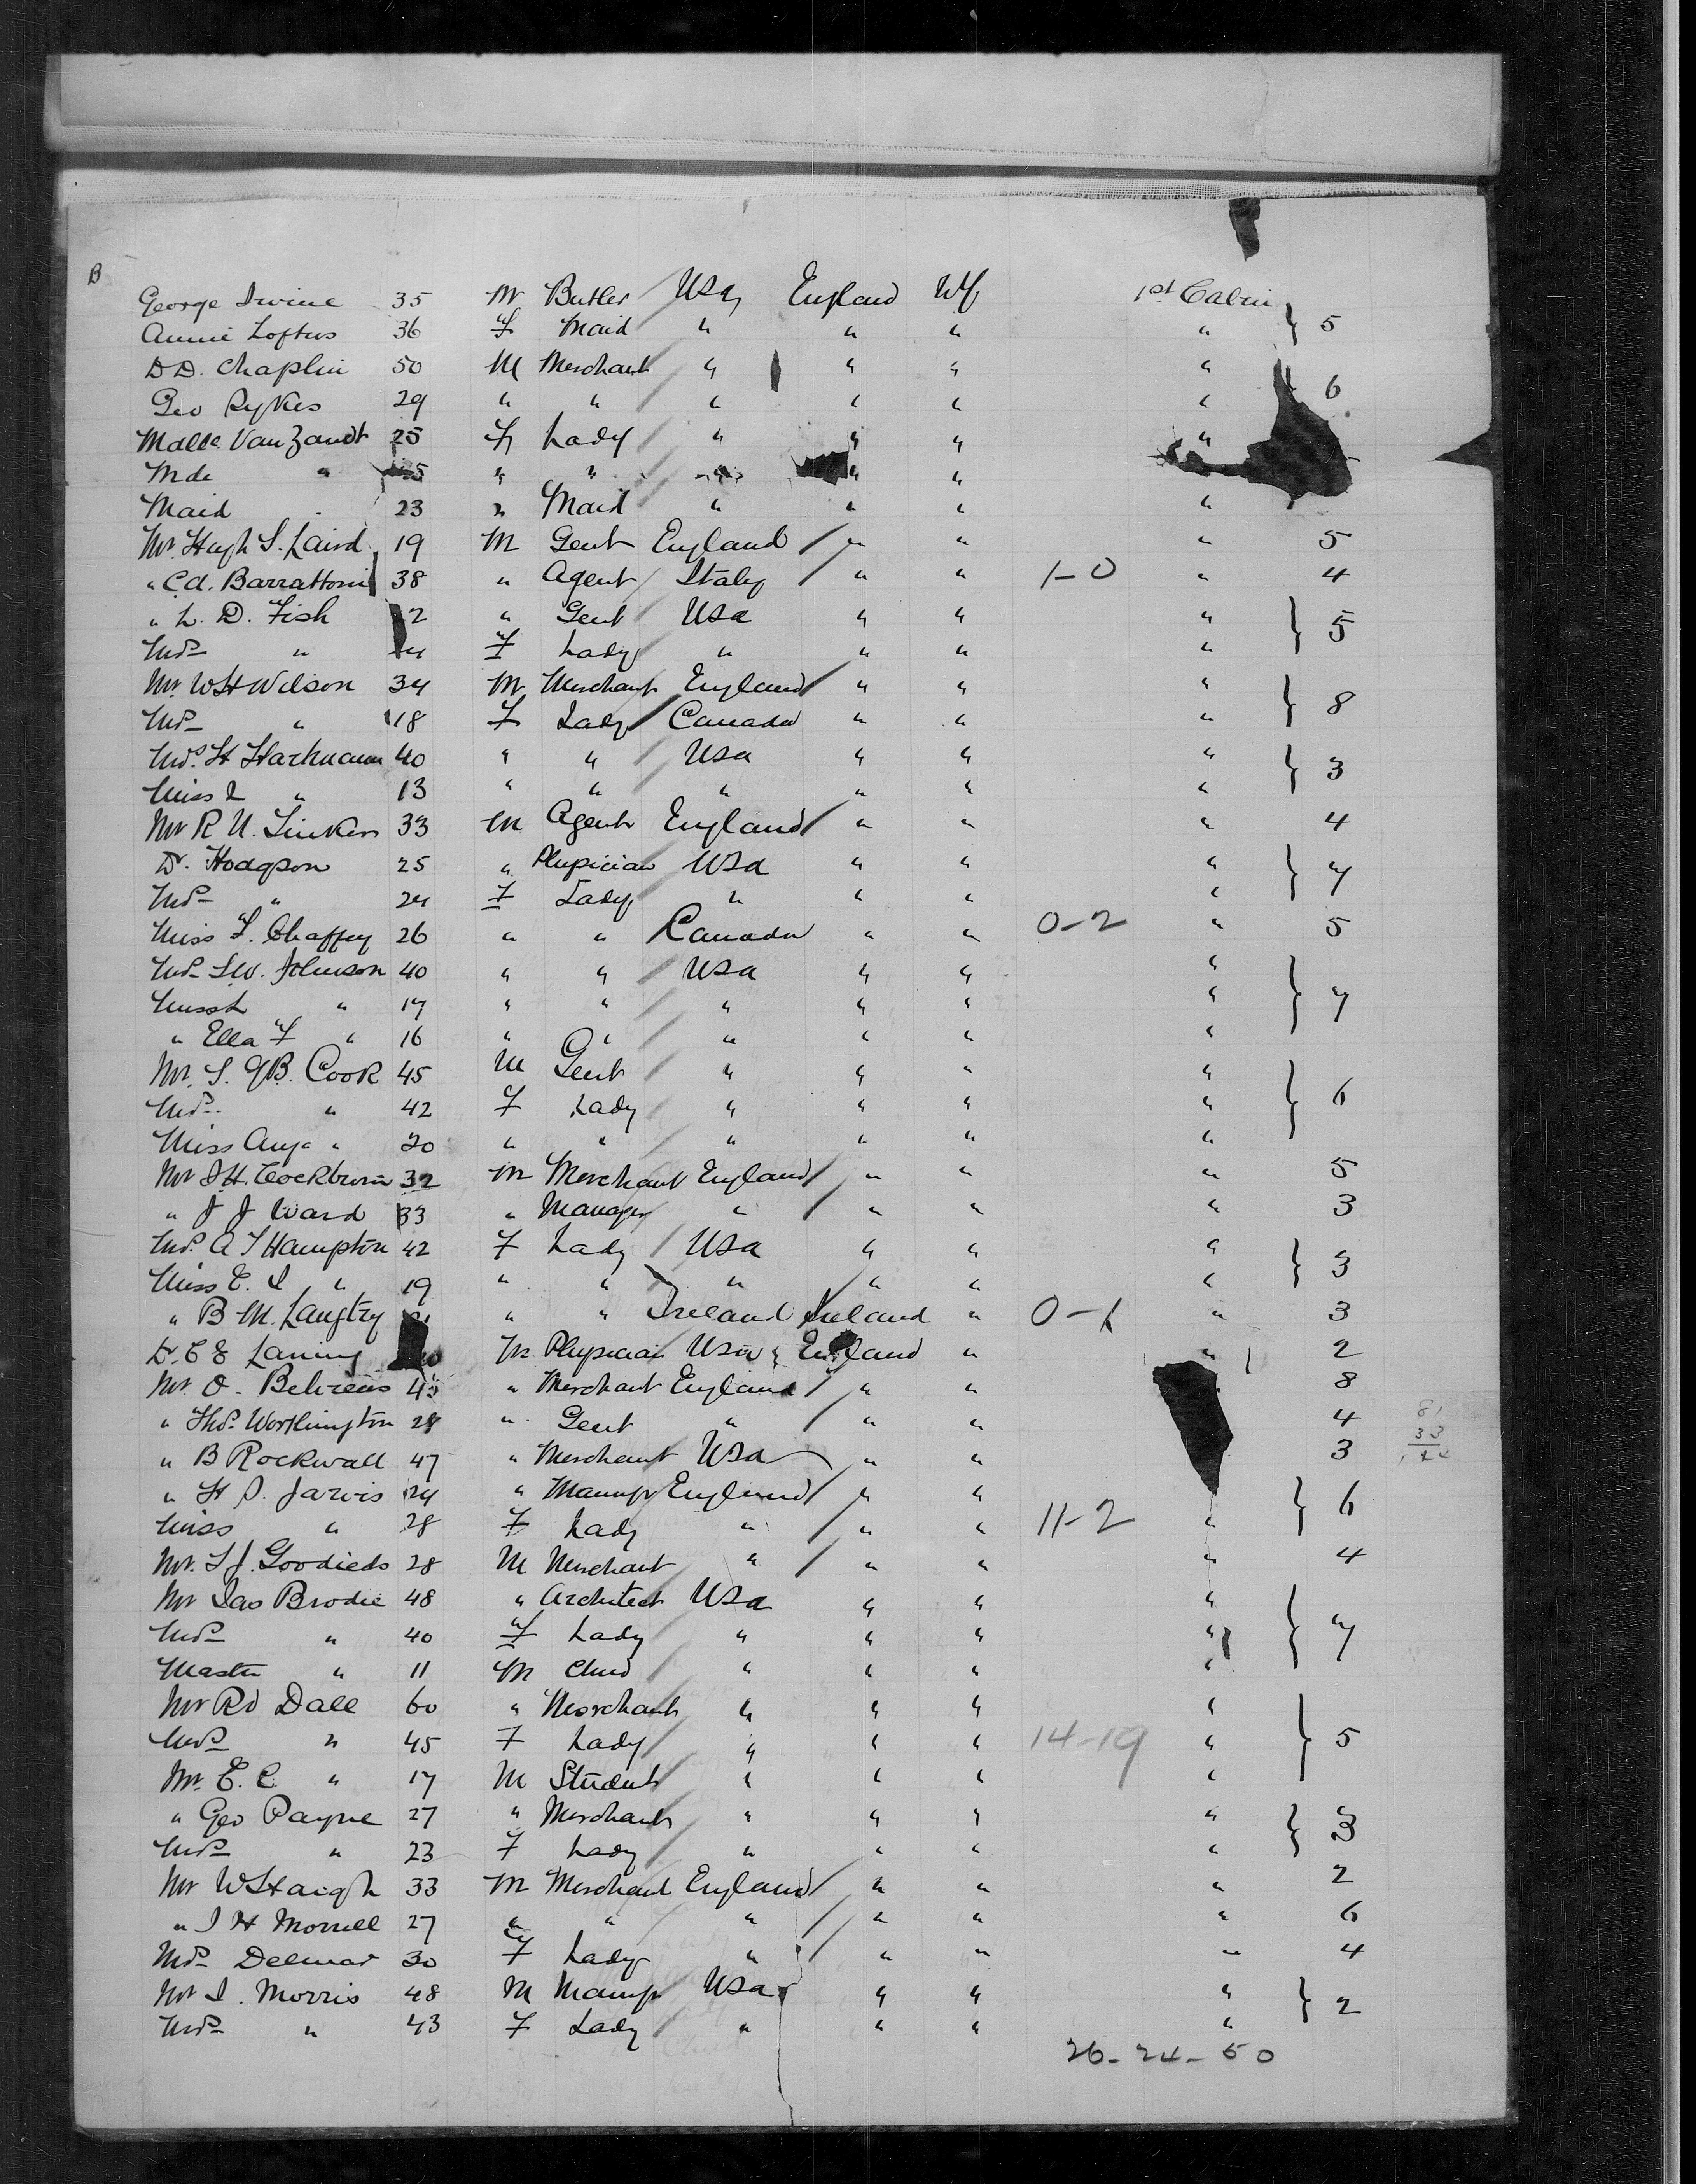 B
George Irvine 35 M Butler USa England NY 1st Cabin
Annie Loftus 36 F Maid " " " " } 5
D D. Chaplin 50 M Merchant " " " "
Geo Sykes 29 " " " " " " 6
Malle. Van Zandt 25 F Lady " " " "
Mde " " " " " "
Maid 23 " Maid " " " "
Mr. Hugh S. Laird 19 M Gent England " " " 5
" Cd. Barrattoni 38 " Agent Italy " " 1-0 " 4
" L. D. Fish 2 " Gent USa " " " } 5
Mrs " F Lady " " " "
Mr. WH Wilson 34 M Merchant England " " " } 8
Mrs " 18 F Lady Canada " " "
Mrs. H Hartmann 40 " " USa " " " } 3
Miss " 13 " " " " " "
Mr R U. 33 M Agent England " " " 4
Dr. Hodgson 25 " Physician USa " " " } 7
Mrs " 24 F Lady " " " "
Miss F. Chaffey 26 " " Canada " " 0-2 " 5
Mrs S.W. Johnson 40 " " USa " " " } 7
Miss L " 17 " " " " " "
" Ella F " 16 " " " " " "
Mr. S. B. Cook 45 M Gent " " " " } 6
Mrs. " 42 F Lady " " " "
Miss " 20 " " " " " "
Mr J H. Cockburn 32 M Merchant England " " " 5
" J J Ward 33 " Manager " " " " 3
Mrs. A T Hampton 42 F Lady USa " " " } 3
Miss E. " 19 " " " " " "
" B M. Langtry " " Ireland Ireland " 0-1 " 3
Dr. C E Laning M Physician USa England " " 2
Mr. O. Behrens 45 " Merchant England " " 8
" Thos. Worthington 28 " Gent " " " 4 81
" B Rockwall 47 " Merchant USa " " 3 33
" H S. Jarvis 24 " Manufr England " " } 6
Miss " 28 F Lady " " " 11-2 "
Mr. Goodieds 28 M Merchant " " " " 4
Mr Jas Brodie 48 " Architect USa " " " } 7
Mrs " 40 F Lady " " " "
Master " 11 M Child " " " "
Mr Rd Dall 60 " Merchant " " " " } 5
Mrs " 45 F Lady " " " 14-19 "
Mr. E. C. " 17 M Student " " " "
" Geo Payne 27 " Merchant " " " " } 3
Mrs " 23 F Lady " " " "
Mr W Haigh 33 M Merchant England " " " 2
" J H Morrell 27 " " " " " " 6
Mrs Delmar 30 F Lady " " " " 4
Mr I. Morris 48 M Manufr USa " " " } 2
Mrs " 43 F Lady " " " "
26-24-50